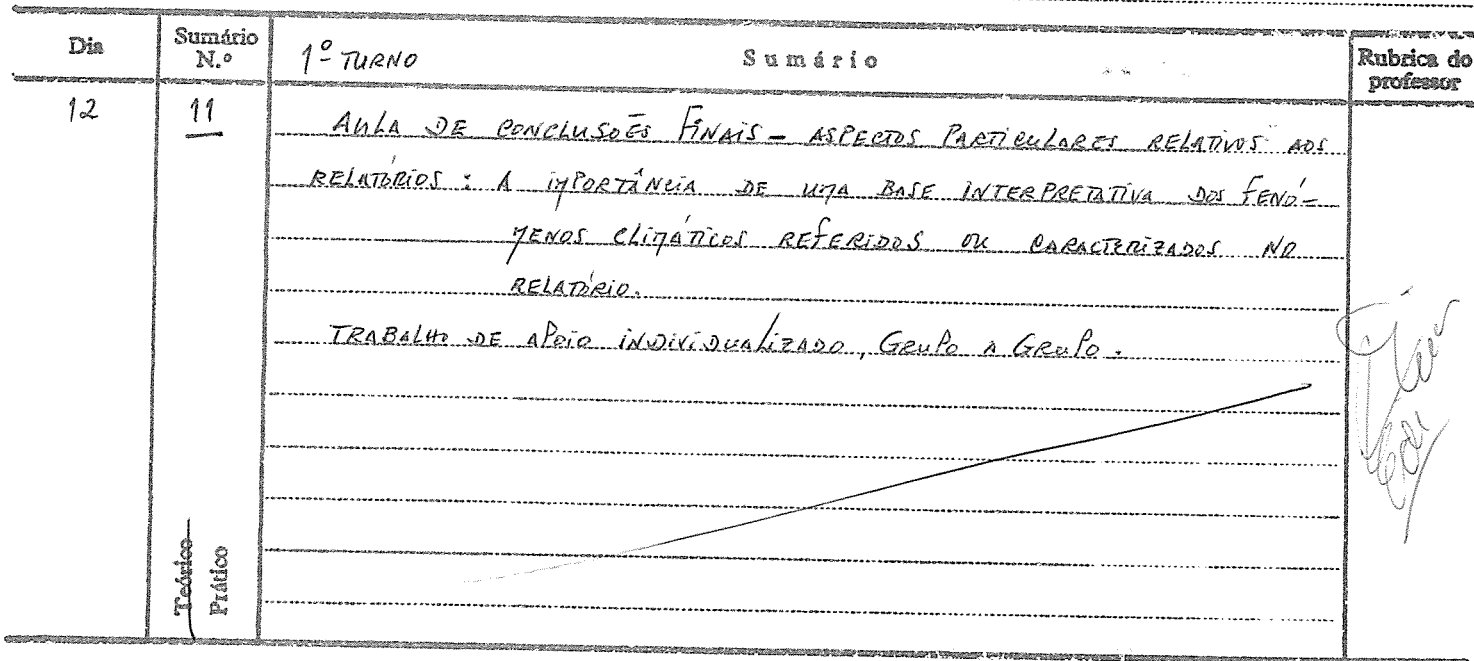 Dia
Sumário N.º
1º TURNO
Sumário
Rubrica do professor
12
11
AULA DE CONCLUSÕES FINAIS - ASPECTOS PARTICULARES RELATIVOS AOS
RELATÓRIOS : A IMPORTÂNCIA DE UMA BASE INTERPRETATIVA DOS FENÓ-
MENOS CLIMÁTICOS REFERIDOS OU CARACTERIZADOS NO
RELATÓRIO.
TRABALHO DE APOIO INDIVIDUALIZADO, GRUPO A GRUPO.
Teórico
Prático